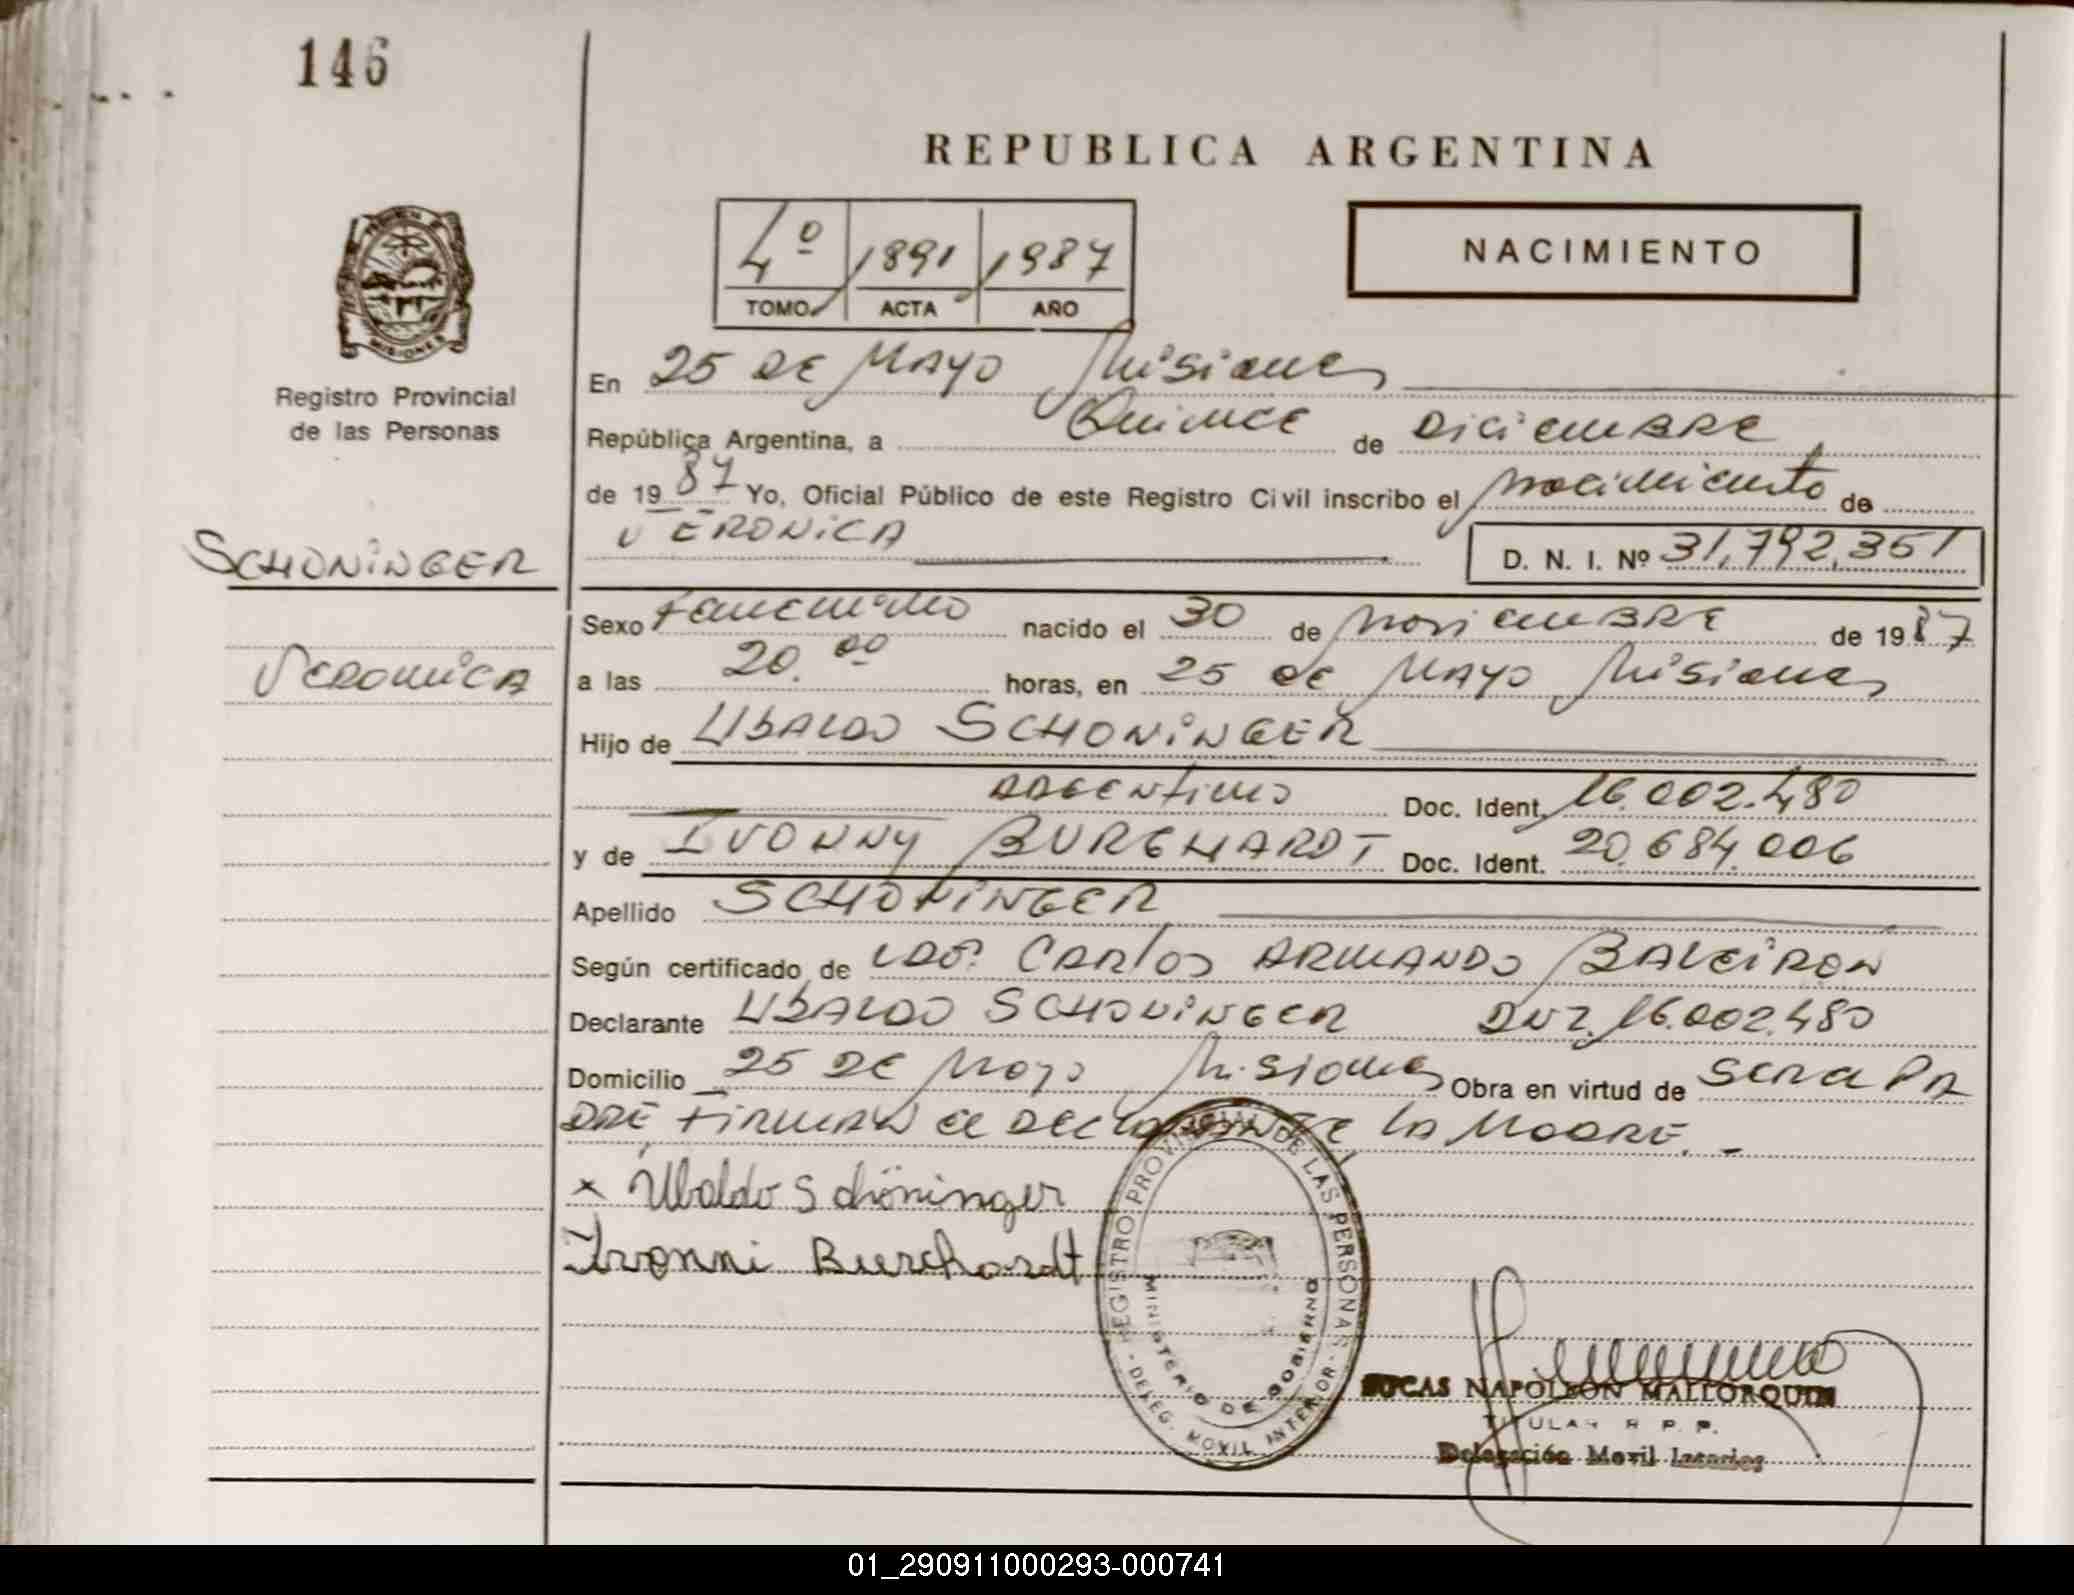 146
REPUBLICA ARGENTINA
4º 1891 1987
TOMO ACTA AÑO
NACIMIENTO
MISIONES
Registro Provincial
de las Personas
En 25 DE MAYO Misiones
República Argentina, a Quince de DiciemBRE
de 1987 Yo, Oficial Público de este Registro Civil inscribo el nacimiento de
VERONICA
D. N. I. Nº 31.792.351
SCHONINGER
VERONICA
Sexo Femenino nacido el 30 de NoviemBRE de 1987
a las 20.00 horas, en 25 DE MAYO Misiones
Hijo de UBALDO SCHONINGER
ARGENtino Doc. Ident. 16.002.480
y de IVONNY BURGHARDT Doc. Ident. 20.684.006
Apellido SCHONINGER
Según certificado de Carlos ARMANDO
Declarante UBALDO SCHONINGER DNI. 16.002.480
Domicilio 25 DE Mayo Misiones Obra en virtud de SER el PA
DRE FIRMAN el DECLARANTE LA MADRE. -
x Ubaldo Schöninger
Ivonni Burchardt
REGISTRO PROVINCIAL DE LAS PERSONAS
MINISTERIO DE GOBIERNO
- DELEG. MOVIL INTERIOR -
LUCAS NAPOLEON MALLORQUIN
TITULAR R. P. P.
Delegación Movil
01_290911000293-000741